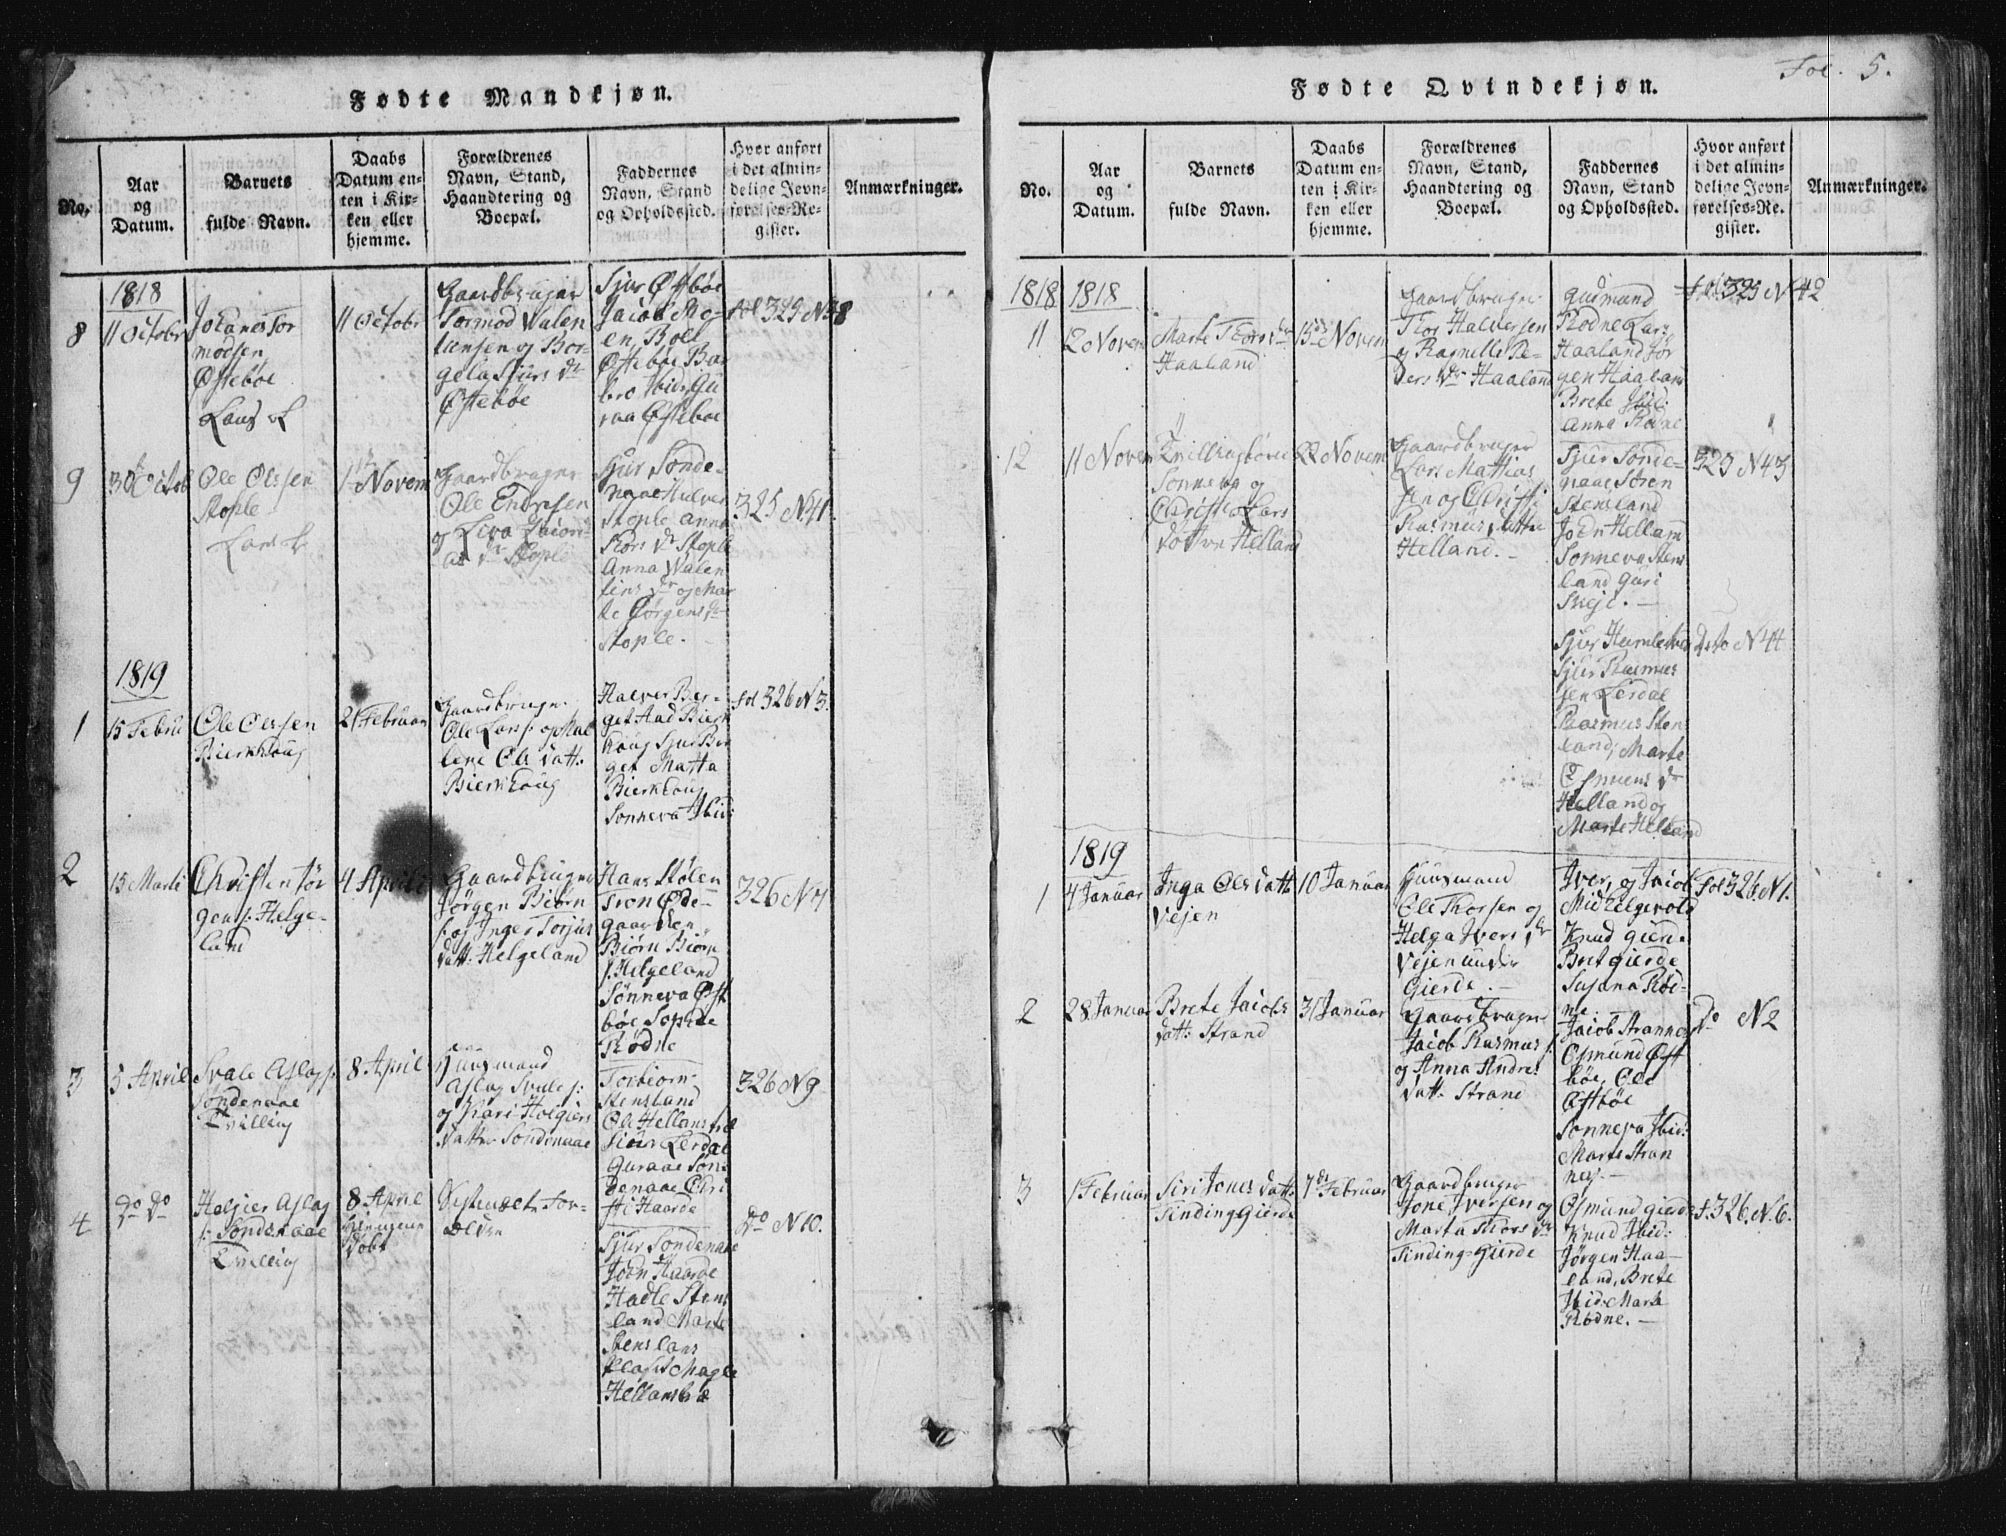 Fol. 5.
Fødte Mandkjøn.
No.
Aar
og
Datum.
Barnets
fulde Navn.
Daabs
Datum en-
ten i Kir-
ken eller
hjemme.
Forældrenes
Navn, Stand,
Haandtering og
Boepæl.
Faddernes
Navn, Stand
og Opholdssted.
Hvor anført
i det almin-
delige Jevn-
førelses-Re-
gister.
Anmærkninger.
1818
8
11 Octobr
Johanes Tor
modsen
Østebøe
11 Octobr
Gaardbruger
Tormod Valen
tinsen og Bor-
gela Siurs dr
Østebøe
Sjur Østbøe
Jacob
Østebøe Bar
bro Ibid: Gu
raa Østeboe
fol 325 N 38
9
30 Octob
Ole Olssen
Stople
1 Novem
Gaardbruger
Ole Endresen
dr Stople
Sjur Sonde-
naae Halver
Stople Anna
Thors dr Stople
Anna Valen
tins dr og Mar
te Jørgens dr
Stople.
325 N 41.
1819
1
15 Febru
Ole Olssen
Bierkhoug
21 Februar
Gaardbruger
Ole Lars s: og Mal
lene Ols datt:
Bierkhoug
Halver Ber-
get Aad Bierk
houg Sjur Ber
get Matta
Bierkhoug
Sonneva Ibid:
fol 326 N 3.
2
15 Marti
Christen Jør
gens: Helge-
land
4 Aprili
Gaardbruger
Jørgen Biørn
s: og Inger Torjus
datt: Helgeland
Hans Stølen
Iven Øde-
gaarden
Biørn Biørn
s: Helgeland
Sønneva Øst
bøe Sophie
Rødne
326 N 7
3
5 April
Svale Aslag s:
Søndenaae
Tvilling
8 April
Huusmand
Aslag Svale s:
og Kari Holgiers
datter Sondenaae
Torbiorn
Stensland
Ole Hellans
Siur Lerdal
Guraae Søn
denaae Chri
sti Haarde
326 N 9
4
Do Do
Helgier Aslag
s: Søndenaae
Tvilling
8 April
døbt
For-
Sjur Sondenaae
John Haarde
Hadle Stens
land Marte
Stenslans
Hellansbø
Do N 10.
Fødte Qvindekjøn.
No.
Aar
og
Datum.
Barnets
fulde Navn.
Daabs
Datum en-
ten i Kir-
ken eller
hjemme.
Forældrenes
Navn, Stand,
Haandtering og
Boepæl.
Faddernes
Navn, Stand
og Opholdssted.
Hvor anført
i det almin-
delige Jevn-
førelses-Re-
gister.
Anmærkninger.
1818 1818
11
12 Novem
Marte Thors dr
Haaland
15de Novem
Gaardbruger
Thor Halversen
og Ragnelle Pe-
ders dr Haaland
Gudmund
Rodne Lars
Haaland Jør
gen Haaland
Brete Ibid:
Anna Rodne
fol 325 N 42
12
11 Novem
Tvillingbørn
Sonneva og
Christi Lars
døttre Helland
22 Novem
Gaardbruger
Lars Mathias
sen og Christi
Rasmus datter
Helland.
Sjur Sonde-
naae Soren
Stensland
John Helland
Sonneva Stens
land Guri
Skeje.
325 N 43
Sjur Humlebrek
Sjur Rasmus
sen Lerdal
Raasmus Stens
land, Marte
Osmuens dr
Helland og
Marte Helland
Dito N 44
1819
1
4 Januar
Inga Ols datt:
Vejen
10 Januar
Huusmand
Ole Thorsen og
Helga Ivers dr
Vejen under
Gierde.
Iver, og Jacob
Mickelgevold
Knud Gierde
Bret Gierde
Susana Rød-
ne.
fol 326 N 1.
2
28 Januar
Brete Jacobs
datt: Strand
31 Januar
Gaardbruger
Jacob Rasmus s:
og Anna Andres
datt: Strand
Jacob Stranne
Osmund Øst
bøe, Ole
Østbøe
Sonneva Ibid:
Marte Stran
nes.
Do N 2
3
1 Februar
Siri Jones datt:
Tinding Gierde
7de Februar
Gaardbruger
Jone Iversen og
Marta Thors dr
Tinding=Gierde
Osmund Gierde
Knud Ibid:
Jørgen Haa-
land, Brete
Ibid: Marte
Rødne.
f. 326. N. 6.